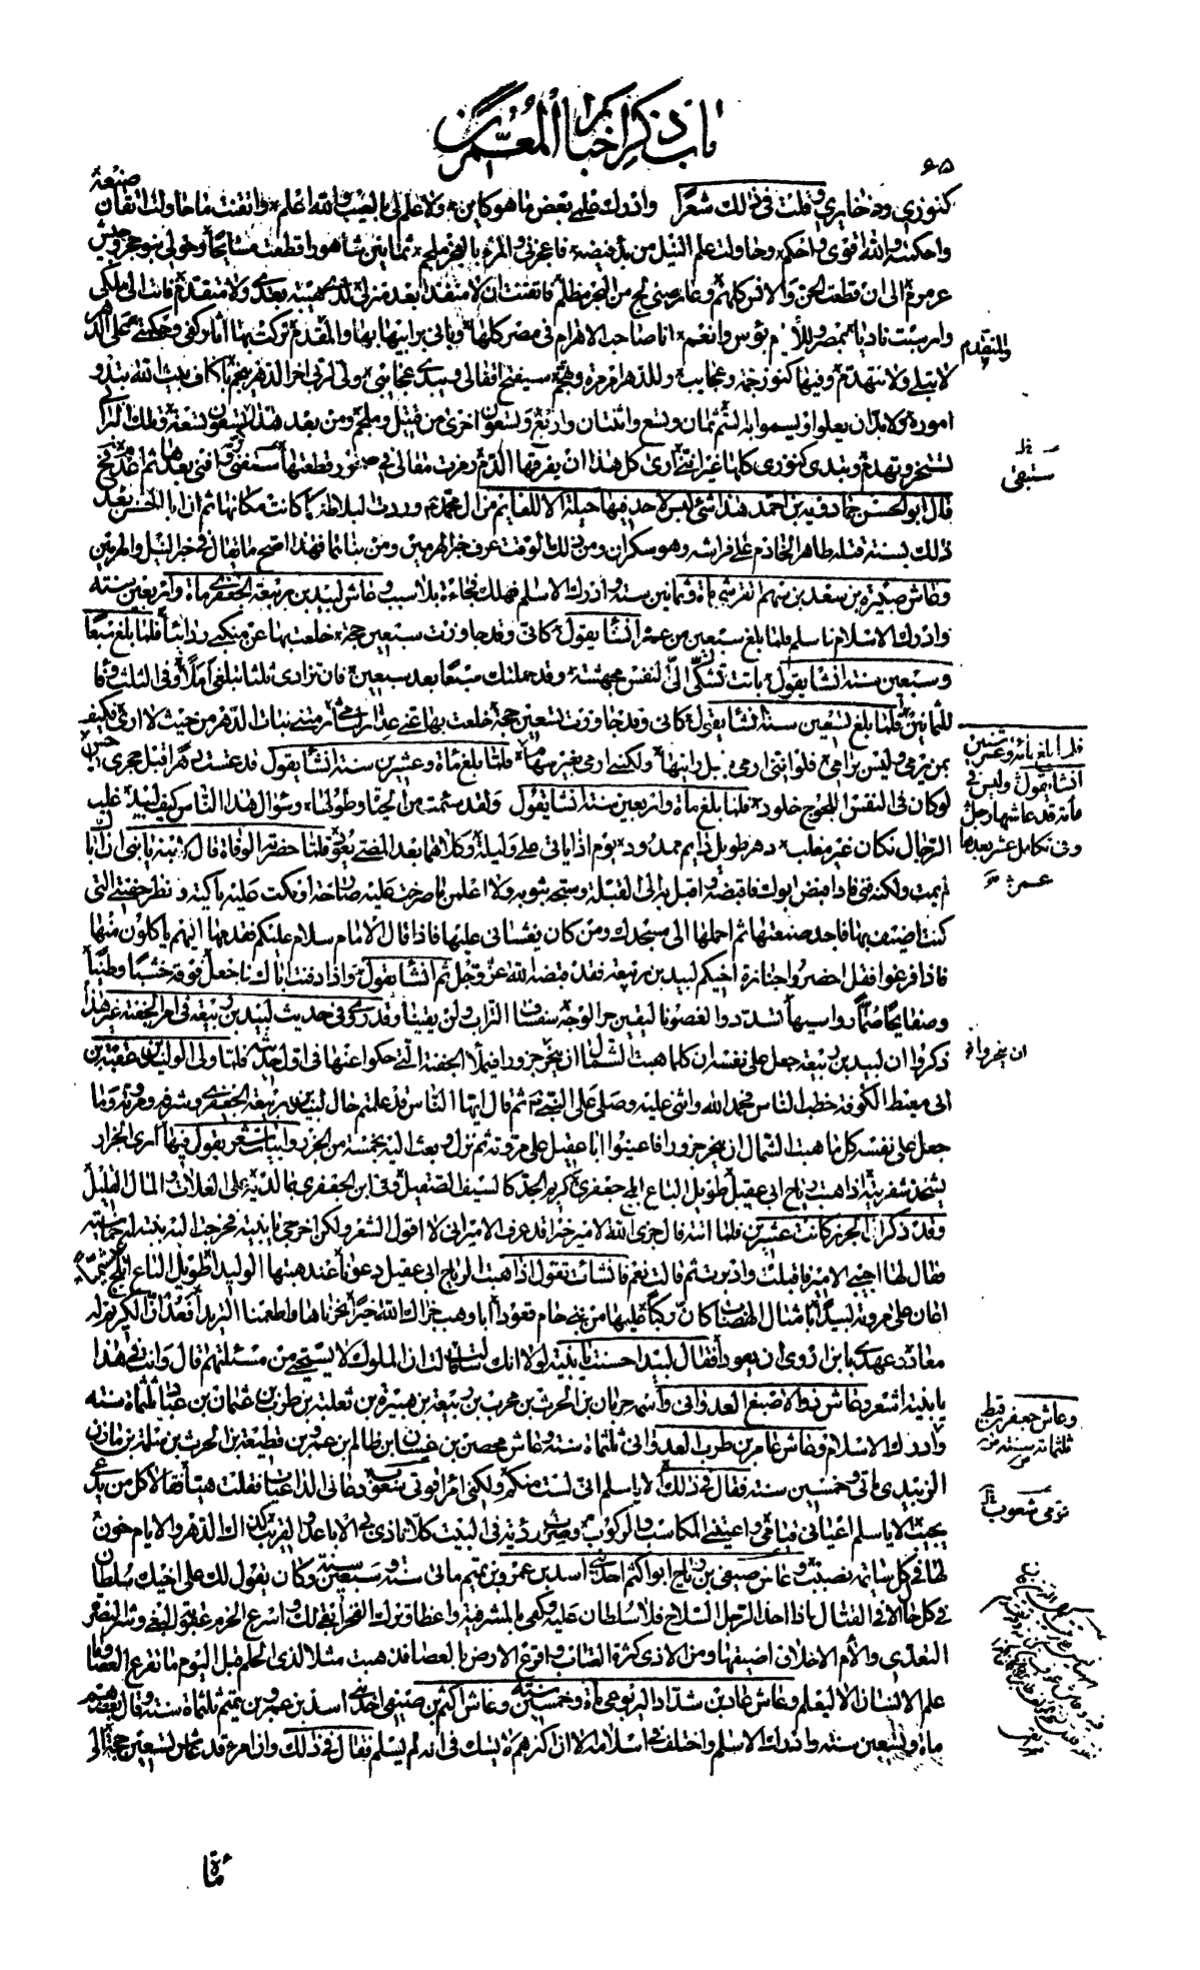 باب ذكر اخبار المعمرين
۶۵
كنوزي وذخايري وقلت في ذلك شعرا وادرك علمي بعض ما هو كاين ولا علم لي بالغيب والله اعلم واتقنت ما حاولت اتقان صنعة
واحكمته والله اقوى واحكم وحاولت علم النيل من بدء فيضه فاعجزني والمرء بالعجز ملجم ثمانين شاهورا قطعت مسايحا وحولي بنو حجر وجيش
عرمرم الى ان قطعت الجن والانس كلهم وعارضني لج من البحر مظلم فايقنت ان لا منفذا بعد منزلي لذي هيبة بعدي ولا متقدم فابت الى ملكي
وارسيت ناديا بمصر وللأيام بؤس وانعم انا صاحب الاهرام في مصر كلها وباني برابيها بها والمقدم تركت بها اثار كفي وحكمتي على الدهر
لا تبلى ولا تتهدم وفيها كنوز جمة وعجايب وللدهر امر مرة وتهجم سيفتح اقفالي ويبدي عجايبي ولي لربي اخر الدهر ينجم باكناف بيت الله تبدو
اموره ولا بد ان يعلو ويسمو به السم ثمان وتسع واثنتان واربع وتسعون اخرى من قتيل وملجم ومن بعد هذا تسعون تسعة وتلك البرابي
تستخر وتهدم وتبدى كنوزي كلها غير انني ارى كل هذا ان يفرقها الدم رمزت مقالي في صخور قطعتها ستفنى وافنى بعدها ثم اعدم
قال ابو الحسن حمادويه بن احمد هذا شئ ليس لاحد فيها حيلة الا للقايم من ال محمد وردت البلاطة كما كانت مكانها ثم ان ابا الجيش بعد
ذلك بسنة قتله طاهر الخادم على فراشه وهو سكران ومن ذلك الوقت عرف خبر الهرمين ومن بناهما فهذا اصح ما يقال في خبر النيل والهرمين
وعاش ضبيرة بن سعد بن سهم القرشي مأة وثمانين سنة وادرك الاسلام فهلك فجاءة بلا سبب وعاش لبيد بن ربيعة الجعفري مأة واربعين سنة
وادرك الاسلام فاسلم فلما بلغ سبعين من عمره انشأ يقول كاني وقد جاوزت سبعين حجة خلعت بها عن منكبي ردائيا فلما بلغ سبعا
وسبعين سنة انشأ يقول باتت تشكى الى النفس مجهشة وقد حملتك سبعا بعد سبعين فان تزادي ثلثا تبلغي املا وفي الثلث وفاء
للثمانين فلما بلغ تسعين سنة انشأ يقول كاني وقد جاوزت تسعين حجة خلعت بها عني عذار لثامي رمتني بنات الدهر من حيث لا ارى فكيف
بمن يرمى وليس برامي فلو انني ارمى بنبل رايتها ولكنني ارمى بغير سهام فلما بلغ مأة وعشرين سنة انشأ يقول قد عشت دهرا قبل مجرى داحس
لو كان في النفس اللجوج خلود فلما بلغ مأة واربعين سنة انشأ يقول ولقد سئمت من الحيوة وطولها وسؤال هذا الناس كيف لبيد غلب
الرجال فكان غير مغلب دهر طويل دايم ممدود يوم اذا ياتي علي وليلة وكلاهما بعد المضي يعود فلما حضرته الوفاة قال لابنه يا بني ان اباك
لم يمت ولكنه فني فاذا قبض ابوك فاقبضه واقبل به الى القبلة وسجه بثوبه ولا اعلمن ما صرخت عليه صارخة او بكت عليه باكية وانظر جفنتي التي
كنت اضيف بها فاجد صنعتها ثم احملها الى مسجدك ومن كان يغشاني عليها فاذا قال الامام سلام عليكم فقدمها اليهم ياكلون منها
فاذا فرغوا فقل احضروا جنازة اخيكم لبيد بن ربيعة فقد قبضه الله عز وجل ثم انشأ يقول واذا دفنت اباك فاجعل فوقه خشبا وطينا
وصفايحا صما رواسيها تسدد الغصونا ليقين حر الوجه سفساف التراب ولن يقينا وقد روي في حديث لبيد بن ربيعة في امر الجفنة غير هذا
ذكروا ان لبيد بن ربيعة جعل على نفسه ان كلما هبت الشمال ان ينحر جزورا فيملأ الجفنة التي حكوا عنها في اول حديثه فلما ولى الوليد بن عقبة بن
ابي معيط الكوفة خطب الناس فحمد الله واثنى عليه وصلى على النبي ثم قال ايها الناس قد علمتم حال لبيد بن ربيعة الجعفري وشرفه ومروته وما
جعل على نفسه كل ما هبت الشمال ان ينحر جزورا فاعينوا ابا عقيل على مروته ثم نزل وبعث اليه بخمسة من الجزر وابيات شعر يقول فيها ارى الجزار
يشحذ شفرتيه اذا هبت رياح ابي عقيل طويل الباع ابلج جعفري كريم الجد كالسيف الصقيل وفى ابن الجعفري بما لديه على العلات والمال القليل
وقد ذكر ان الجزر كانت عشرين فلما اتته قال جزى الله الامير خيرا قد عرف الامير اني لا اقول الشعر ولكن اخرجي يا بنية فخرجت اليه بنية له خماسية
فقال لها اجيبي الامير فاقبلت وادبرت ثم قالت نعم فانشأت تقول اذا هبت رياح ابي عقيل دعونا عند هبتها الوليدا طويل الباع ابلج عبشميا
اعان على مروته لبيدا بامثال الهضاب كان ركبا عليها من بني حام قعودا ابا وهب جزاك الله خيرا نحرناها واطعمنا الثريدا فعد ان الكريم له
معاد وعهدي بابن اروى ان يعودا فقال لبيد احسنت يا بنية لولا انك سألت قالت ان الملوك لا يستحي من مسئلتهم قال وانت في هذا
يا بنية اشعر وعاش ذو الاصبع العدواني واسمه حرثان بن الحرث بن محرب بن ربيعة بن هبيرة بن ثعلبة بن ظرب بن عثمان بن عياذ ثلثمأة سنة
وادرك الاسلام وعاش عامر بن ظرب العدواني ثلثمأة سنة وعاش محصن بن غسان بن ظالم بن عمرو بن قطيعة بن الحرث بن سلمة بن مازن
الزبيدي مأتي وخمسين سنة فقال في ذلك الا يا سلم اني لست منكم ولكني امرء قوتي سغوب دعاني الداعيان فقلت هيا فقالا كل من يدعى
يجيب الا يا سلم اعياني قيامي واعيتني المكاسب والركوب وصرت رذية في البيت كلا تأذى بي الاباعد والقريب كذاك الدهر والايام خون
لها في كل سائمة نصيب وعاش صيفي بن رياح ابو اكثم احد بني اسد بن عمرو بن تميم مأتي سنة وسبعين سنة وكان يقول لك على اخيك سلطان
في كل حال الا في القتال فاذا اخذ الرجل السلاح فلا سلطان عليه وكفى بالمشرفية واعظا وترك الفخر ابقى لك واسرع الجرم عقوبة البغي وشر النصرة
التعدي والأم الاخلاق اضيقها ومن الاذى كثرة العتاب واقرع الارض بالعصا فذهبت مثلا لذي الحلم قبل اليوم ما تقرع العصا وما
علم الانسان الا ليعلم وعاش عاد بن شداد اليربوعي مأة وخمسين سنة وعاش اكثم بن صيفي احد بني اسد بن عمرو بن تميم ثلثمأة سنة وقال بعضهم
مأة وتسعين سنة وادرك الاسلام واختلف في اسلامه الا ان اكثرهم لا يشك في انه لم يسلم فقال في ذلك وان امرء قد عاش تسعين حجة الى
مأة
والمتقدم
ستبقى
فلما بلغ مائة وعشر سنين
انشأ يقول وليس في
مأة قد عاشها رجل
وفي تكامل عشر بعدها
عمر
ان ينحر جزورا
وعاش جعفر بن قبط
ثلثمأة سنة
قومي شعوب